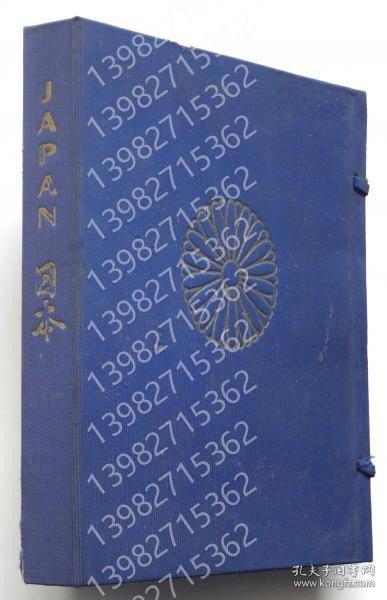 JAPAN
13982715362
13982715362
13982715362
13982715362
13982715362
13982715362
13982715362
13982715362
13982715362
13982715362
13982715362
13982715362
孔夫子旧书网
www.kongfz.com